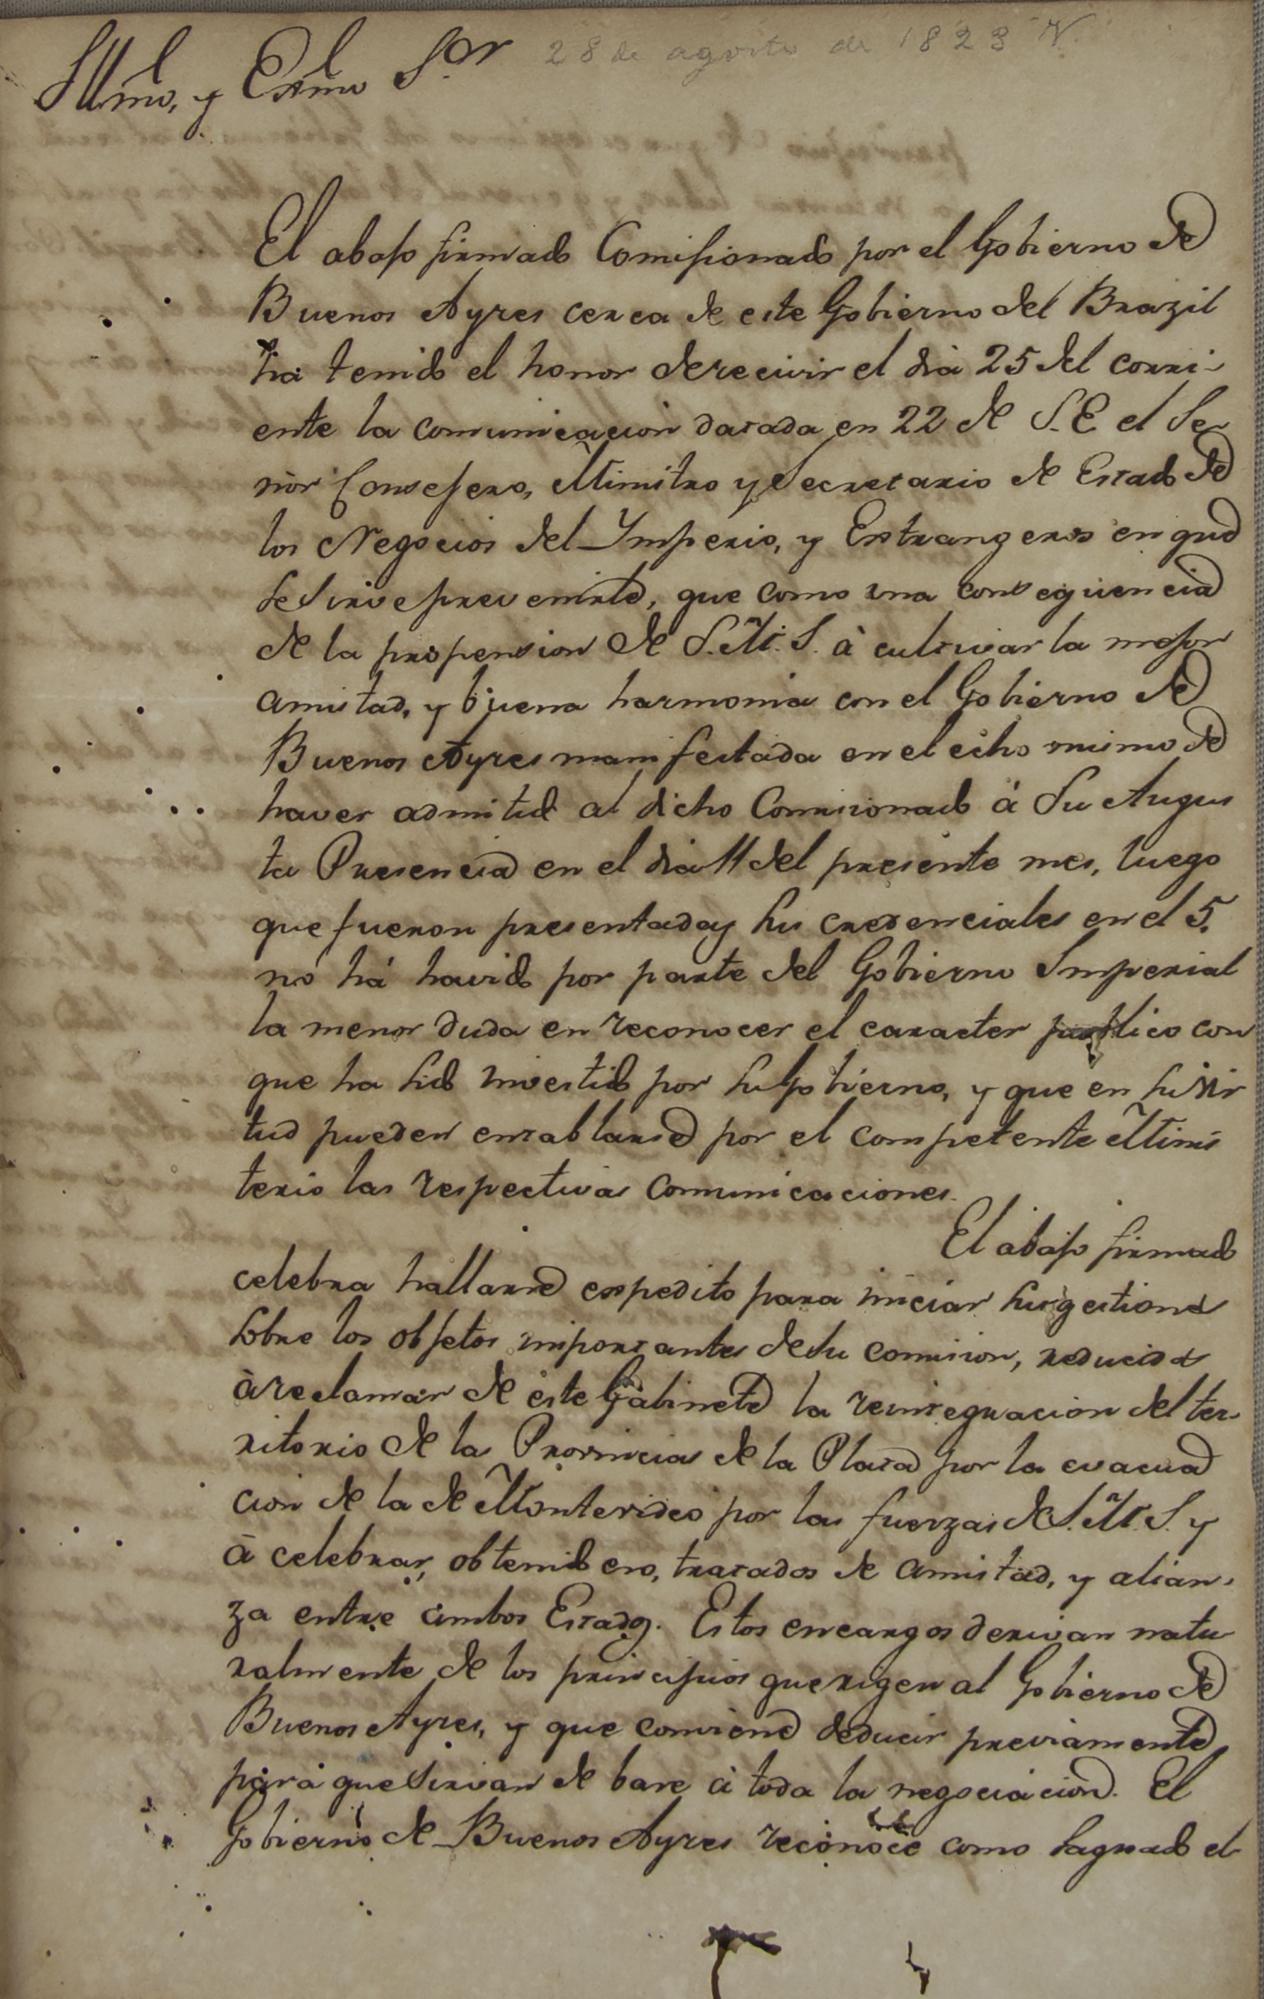 28 de agosto de 1823 N.
Illmo, y Exmo Sor
El abajo firmado Comisionado por el Gobierno de
Buenos Ayres cerca de este Gobierno del Brazil
ha tenido el honor de recivir el dia 25 del corri-
ente la comunicacion datada en 22 de S.E el Se-
ñor Consejero, Ministro y Secretario de Estado de
los Negocios del Imperio, y Extrangeros en que
se sirve prevenirle, que como una consequencia
de la propension de S.M.I. à cultivar la mejor
amistad, y buena harmonia con el Gobierno de
Buenos Ayres manifestada en el echo mismo de
haver admitido al dicho Comisionado á Su Augus
ta Presencia en el dia 11 del presente mes, luego
que fueron presentadas sus credenciales en el 5,
no há havido por parte del Gobierno Imperial
la menor duda en reconocer el caracter publico con
que ha sido investido por su Gobierno, y que en su vir
tud pueden entablarse por el competente Minis
terio las respectivas comunicaciones.
El abajo firmado
celebra hallarse expedito para iniciar sus gestiones
sobre los objetos importantes de su comision, reducidos
à reclamar de este Gabinete la reintegracion del ter-
ritorio de la Provincias de la Plata por la evacua
cion de la de Montevideo por las fuerzas de S.M.I. y
à celebrar, obtenido eso, tratados de amistad, y alian-
za entre ambos Estados. Estos encargos derivan natu
ralmente de los principios que rigen al Gobierno de
Buenos Ayres, y que conviene deducir previamente
para que sirvan de base á toda la negociacion. El
Gobierno de Buenos Ayres reconoce como sagrado el